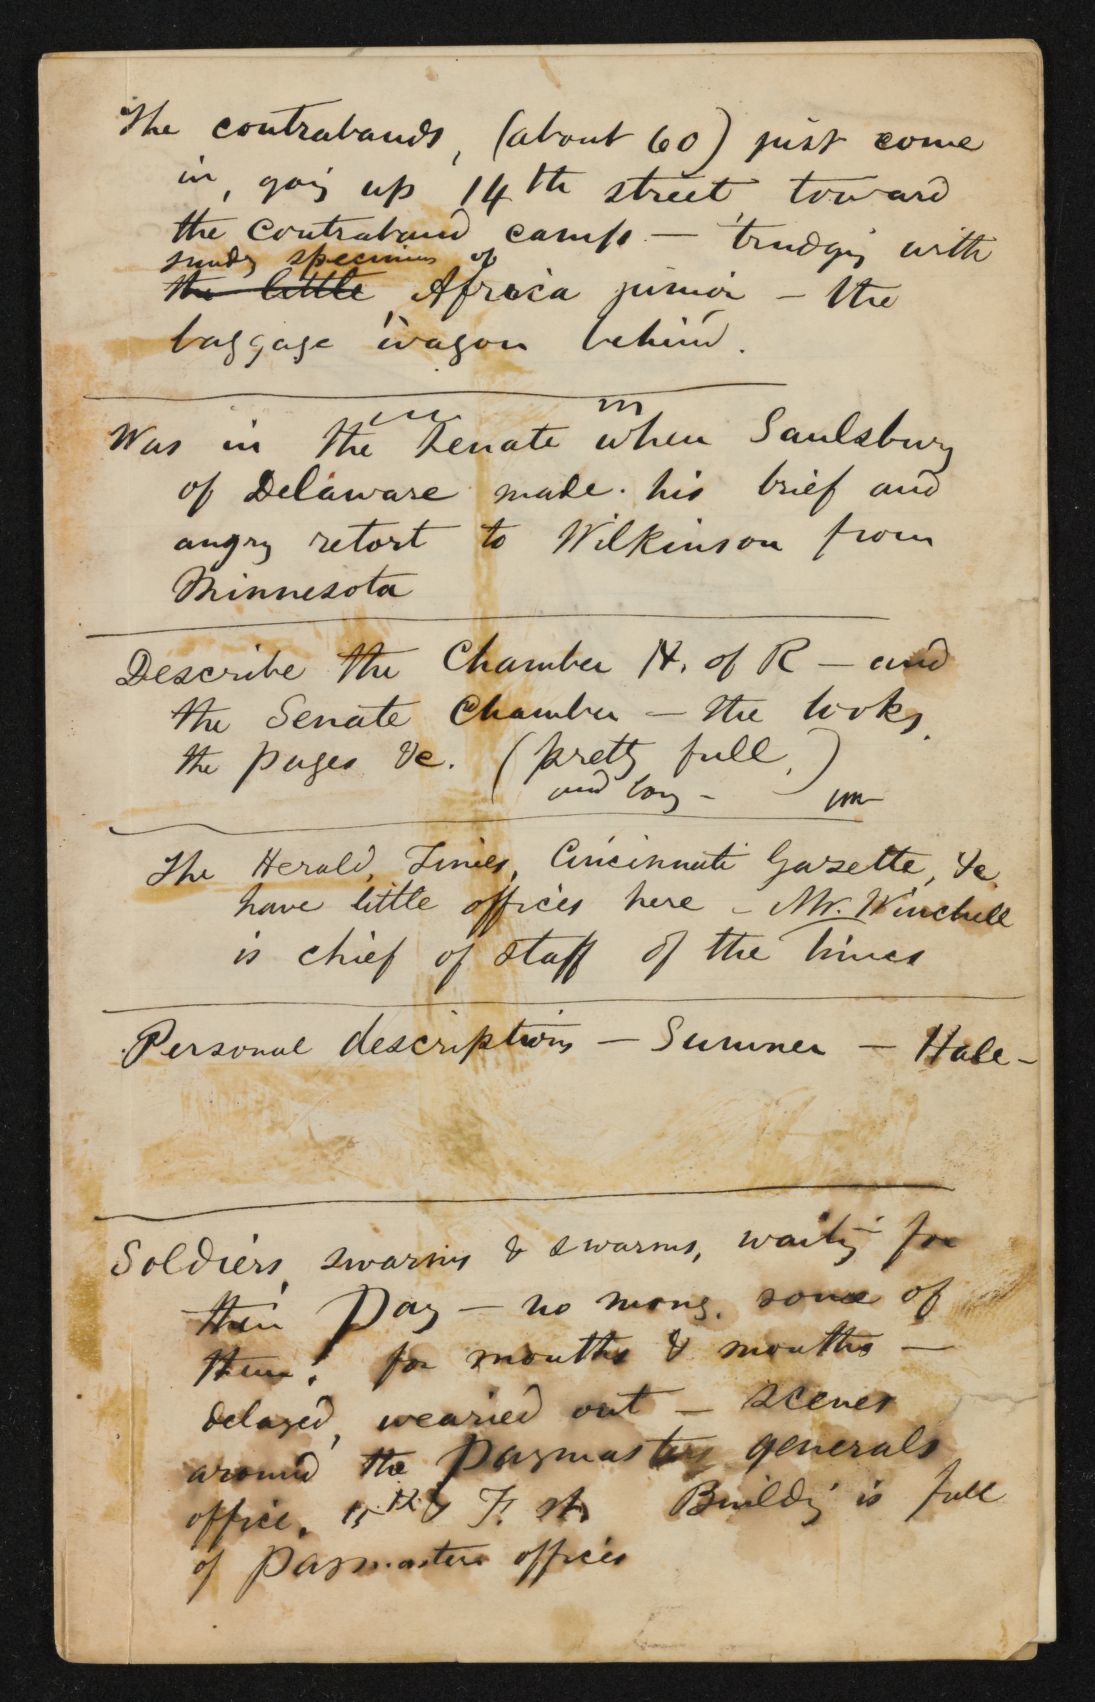 The contrabands, (about 60) just come
in, going up 14th street toward
the contraband camp — trudging with
sundry specimens of
the little Africa junior — the
baggage wagon behind.
Was in the Senate when Saulsbury
of Delaware made his brief and
angry retort to Wilkinson from
Minnesota
Describe the Chamber H. of R — and
the Senate Chamber — the looks,
the pages &c. (pretty full,)
and long —
The Herald, Times, Cincinnati Gazette, &c
have little offices here — Mr. Winchell
is chief of staff of the times
Personal descriptions — Sumner — Hale —
Soldiers, swarms & swarms, waiting for
their Pay — no money, some of
them, for months & months —
delayed, wearied out — scenes
around the Paymasters generals
office, 15th & F. st. Building is full
of Paymasters offices